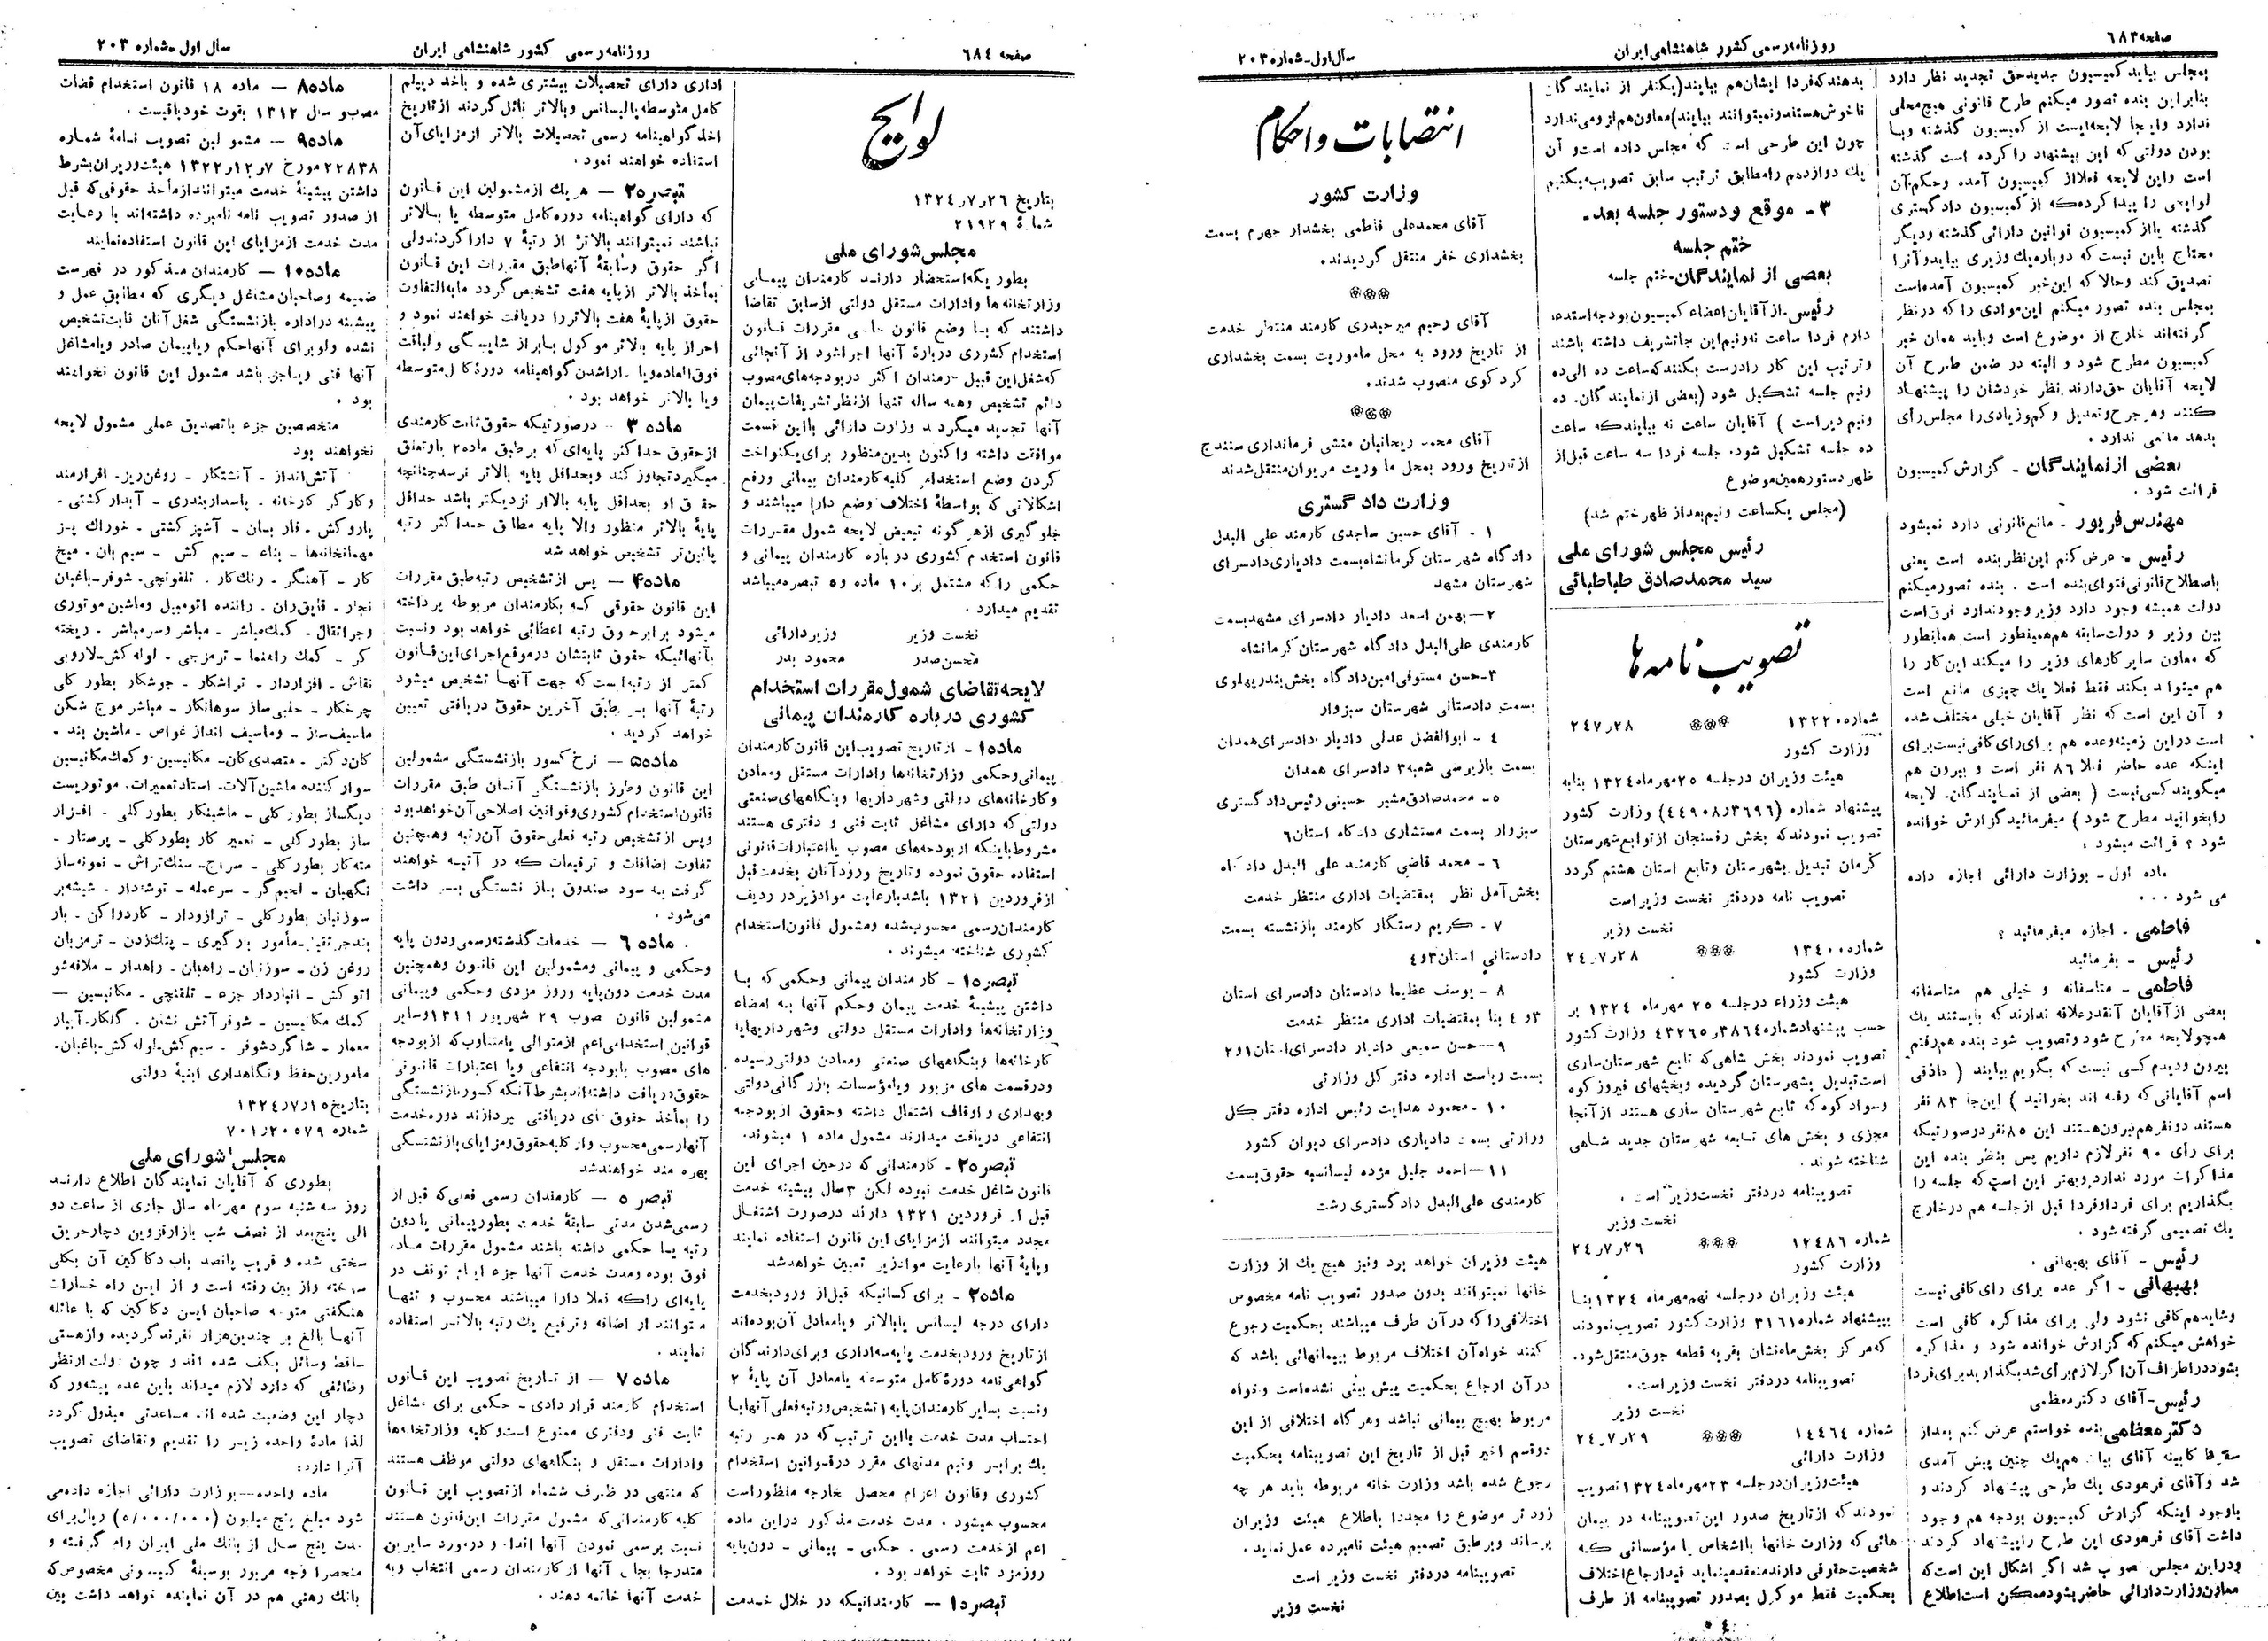 صفحه ۶۸۳
روزنامه رسمی کشور شاهنشاهی ایران
سال اول-شماره ۲۰۳
بمجلس بیاید کمیسیون جدید حق تجدید نظر دارد
بنابراین بنده تصور میکنم طرح قانونی هیچ محلی
ندارد واینجا لایحه ایست از کمیسیون گذشته وبا
بودن دولتی که این پیشنهاد را کرده است گذشته
است واین لایحه فعلااز کمیسیون آمده وحکم آن
لوایحی را پیدا کرده که از کمیسیون دادگستری
گذشته یااز کمیسیون قوانین دارائی گذشته ودیگر
محتاج باین نیست که دوباره یك وزیری بیاید وآنرا
تصدیق کند وحالا که این خبر کمیسیون آمده است
بمجلس بنده تصور میکنم این موادی را که در نظر
گرفته اند خارج از موضوع است وباید همان خبر
کمیسیون مطرح شود و البته در ضمن طرح آن
لایحه آقایان حق دارند نظر خودشان را پیشنهاد
کنند وهر جرح وتعدیل و کم وزیادی را مجلس رأی
بدهد مانعی ندارد .
بعضی از نمایندگان - گزارش کمیسیون
قرائت شود .
مهندس فریور - مانع قانونی دارد نمیشود
رئیس - عرض کنم این نظر بنده است یعنی
باصطلاح قانونی فتوای بنده است . بنده تصور میکنم
دولت همیشه وجود دارد وزیر وجود ندارد فرق است
بین وزیر و دولت سابقه هم همینطور است همانطور
که معاون سایر کارهای وزیر را میکند این کار را
هم میتواند بکند فقط فعلا یك چیزی مانع است
و آن این است که نظر آقایان خیلی مختلف شده
است دراین زمینه وعده هم برای رای کافی نیست برای
اینکه عده حاضر فعلا ۸۶ نفر است و بیرون هم
میگویند کسی نیست ( بعضی از نمایندگان- لایحه
رابخوانید مطرح شود ) میفرمائید گزارش خوانده
شود ؟ قرائت میشود :
ماده اول - بوزارت دارائی اجازه داده
می شود . . .
فاطمی - اجازه میفرمائید ؟
رئیس - بفرمائید
فاطمی - متاسفانه و خیلی هم متاسفانه
بعضی از آقایان آنقدر علاقه ندارند که بایستند یك
همچو لایحه مطرح شود وتصویب شود بنده هم رفتم
بیرون ودیدم کسی نیست که بگویم بیایند ( حاذقی
اسم آقایانی که رفته اند بخوانید ) این جا ۸۳ نفر
هستند دونفر هم بیرون هستند این ۸۵ نفر در صورتیکه
برای رأی ۹۰ نفر لازم داریم پس بنظر بنده این
مذاکرات مورد ندارد وبهتر این است که جلسه را
بگذاریم برای فردا وفردا قبل از جلسه هم در خارج
یك تصمیمی گرفته شود .
رئیس - آقای بهبهانی .
بهبهانی - اگر عده برای رای کافی نیست
وشاید هم کافی نشود ولی برای مذاکره کافی است
خواهش میکنم که گزارش خوانده شود و مذاکره
بشود در اطراف آن اگر لازم برای شد بگذارید برای فردا
رئیس- آقای دکتر معظمی
دکتر معظمی بنده خواستم عرض کنم بعد از
سقوط کابینه آقای بیات هم یك چنین پیش آمدی
شد وآقای فرهودی یك طرحی پیشنهاد کردند و
باوجود اینکه گزارش کمیسیون بودجه هم وجود
داشت آقای فرهودی این طرح را پیشنهاد کردند
ودراین مجلس تصویب شد اگر اشکال این است که
معاون وزارت دارائی حاضر بشود ممکن است اطلاع
بدهند که فردا ایشان هم بیایند (یکنفر از نمایندگان
ناخوش هستند ونمیتوانند بیایند) معاون هم لزومی ندارد
چون این طرحی است که مجلس داده است و آن
یك دوازدهم را مطابق ترتیب سابق تصویب میکنیم
۳ - موقع ودستور جلسه بعد-
ختم جلسه
بعضی از نمایندگان-ختم جلسه
رئیس-از آقایان اعضاء کمیسیون بودجه استدعا
دارم فردا ساعت نه ونیم این جا تشریف داشته باشند
وترتیب این کار را درست بکنند که ساعت ده الی ده
ونیم جلسه تشکیل شود (بعضی از نمایندگان- ده
ونیم دیر است ) آقایان ساعت نه بیایند که ساعت
ده جلسه تشکیل شود. جلسه فردا سه ساعت قبل از
ظهر دستور همین موضوع
(مجلس یکساعت ونیم بعد از ظهر ختم شد)
رئیس مجلس شورای ملی
سید محمد صادق طباطبائی
تصویب نامه ها
شماره ۱۳۲۲۰ ۲۴٫۷٫۲۸
وزارت کشور
هیئت وزیران در جلسه ۲۵ مهر ماه ۱۳۲۴ بنا به
پیشنهاد شماره (۴۴۹۰۸٫۳۶۹۶) وزارت کشور
تصویب نمودند که بخش رفسنجان از توابع شهرستان
کرمان تبدیل بشهرستان وتابع استان هشتم گردد
تصویب نامه در دفتر نخست وزیر است
نخست وزیر
شماره ۱۳۴۰۰ ۲۴٫۷٫۲۸
وزارت کشور
هیئت وزراء در جلسه ۲۵ مهر ماه ۱۳۲۴ بر
حسب پیشنهاد شماره ۴۳۲۶۵٫۳۸۶۴ وزارت کشور
تصویب نمودند بخش شاهی که تابع شهرستان ساری
است تبدیل بشهرستان گردیده وبخشهای فیروز کوه
وسواد کوه که تابع شهرستان ساری هستند از آنجا
مجزی و بخش های تابعه شهرستان جدید شاهی
شناخته شوند .
تصویبنامه در دفتر نخست وزیر است .
نخست وزیر
شماره ۱۲۴۸۶ ۲۴٫۷٫۲۶
وزارت کشور
هیئت وزیران در جلسه نهم مهر ماه ۱۳۲۴ بنا
بپیشنهاد شماره ۳۱۶۱ وزارت کشور تصویب نمودند
که مرکز بخش ماه نشان بقریه قطعه جوق منتقل شود.
تصویبنامه در دفتر نخست وزیر است .
نخست وزیر
شماره ۱۴۴۶۴ ۲۴٫۷٫۲۹
وزارت دارائی
هیئت وزیران در جلسه ۲۳ مهر ماه ۱۳۲۴ تصویب
نمودند که از تاریخ صدور این تصویبنامه در پیمان
هائی که وزارت خانها بااشخاص یا مؤسساتی که
شخصیت حقوقی دارند منعقد مینماید قید ارجاع اختلاف
بحکمیت فقط موکول بصدور تصویبنامه از طرف
انتصابات و احکام
وزارت کشور
آقای محمدعلی فاطمی بخشدار جهرم بسمت
بخشداری خفر منتقل گردیدند.
آقای رحیم میرحیدری کارمند منتظر خدمت
از تاریخ ورود به محل ماموریت بسمت بخشداری
کردکوی منصوب شدند.
آقای محمد ریحانیان منشی فرمانداری سنندج
از تاریخ ورود بمحل ماموریت مریوان منتقل شدند
وزارت دادگستری
۱ - آقای حسین ساجدی کارمند علی البدل
دادگاه شهرستان کرمانشاه بسمت دادیاری دادسرای
شهرستان مشهد
۲ — بهمن اسعد دادیار دادسرای مشهد بسمت
کارمندی علی البدل دادگاه شهرستان کرمانشاه
۳-حسن مستوفی امین دادگاه بخش بندر پهلوی
بسمت دادستانی شهرستان سبزوار
۴ - ابوالفضل عدلی دادیار دادسرای همدان
بسمت بازپرسی شعبه ۳ دادسرای همدان
۵ - محمدصادق مشیر حسینی رئیس دادگستری
سبزوار بسمت مستشاری دادگاه استان ۶
۶ - محمد قاضی کارمند علی البدل دادگاه
بخش آمل نظر بمقتضیات اداری منتظر خدمت
۷ - کریم رستگار کارمند بازنشسته بسمت
دادستانی استان ۳و۴
۸ - یوسف عظیما دادستان دادسرای استان
۳و ۴ بنا بمقتضیات اداری منتظر خدمت
۹ — حسن سمیعی دادیار دادسرای استان ۱و۲
بسمت ریاست اداره دفتر کل وزارتی
۱۰ - محمود هدایت رئیس اداره دفتر کل
وزارتی بسمت دادیاری دادسرای دیوان کشور
۱۱ — احمد جلیل مژده لیسانسیه حقوق بسمت
کارمندی علی البدل دادگستری رشت
هیئت وزیران خواهد بود ونیز هیچ یك از وزارت
خانها نمیتوانند بدون صدور تصویب نامه مخصوص
اختلافی را که در آن طرف میباشند بحکمیت رجوع
کنند خواه آن اختلاف مربوط بپیمانهائی باشد که
در آن ارجاع بحکمیت پیش بینی نشده است وخواه
مربوط بهیچ پیمانی نباشد وهر گاه اختلافی از این
دوقسم اخیر قبل از تاریخ این تصویبنامه بحکمیت
رجوع شده باشد وزارت خانه مربوطه باید هر چه
زودتر موضوع را مجددا باطلاع هیئت وزیران
برساند وبر طبق تصمیم هیئت نامبرده عمل نماید .
تصویبنامه در دفتر نخست وزیر است
نخست وزیر
صفحه ۶۸۴
روزنامه رسمی کشور شاهنشاهی ایران
سال اول-شماره ۲۰۳
لوایح
بتاریخ ۱۳۲۴٫۷٫۲۶
شماره ۲۱۹۲۹
مجلس شورای ملی
بطوریکه استحضار دارند کارمندان پیمانی
وزارتخانه ها وادارات مستقل دولتی از سابق تقاضا
داشتند که با وضع قانون خاصی مقررات قانون
استخدام کشوری دربارهٔ آنها اجرا شود از آنجائی
که شغل این قبیل کارمندان اکثر در بودجه های مصوب
دائم تشخیص وهمه ساله تنها از نظر تشریفات پیمان
آنها تجدید میگردد وزارت دارائی بااین قسمت
موافقت داشته واکنون بدین منظور برای یکنواخت
کردن وضع استخدام کلیه کارمندان پیمانی ورفع
اشکالاتی که بواسطهٔ اختلاف وضع دارا میباشند و
جلوگیری از هر گونه تبعیض لایحه شمول مقررات
قانون استخدام کشوری درباره کارمندان پیمانی و
حکمی را که مشتمل بر ۱۰ ماده و ۵ تبصره میباشد
تقدیم میدارد .
نخست وزیر وزیر دارائی
محسن صدر محمود بدر
لایحه تقاضای شمول مقررات استخدام
کشوری درباره کارمندان پیمانی
ماده ۱- از تاریخ تصویب این قانون کارمندان
پیمانی وحکمی وزارتخانه ها وادارات مستقل ومعادن
وکارخانه های دولتی وشهرداریها وبنگاههای صنعتی
دولتی که دارای مشاغل ثابت فنی و دفتری هستند
مشروط باینکه از بودجه های مصوب یااعتبارات قانونی
استفاده حقوق نموده وتاریخ ورود آنان بخدمت قبل
از فروردین ۱۳۲۱ باشد با رعایت مواد زیر در ردیف
کارمندان رسمی محسوب شده ومشمول قانون استخدام
کشوری شناخته میشوند .
تبصره ۱ - کارمندان پیمانی وحکمی که با
داشتن پیشینهٔ خدمت پیمان وحکم آنها به امضاء
وزارتخانه ها وادارات مستقل دولتی وشهرداریها یا
کارخانه ها وبنگاههای صنعتی ومعادن دولتی رسیده
ودر قسمت های مزبور ویا مؤسسات بازرگانی دولتی
وبهداری و اوقاف اشتغال داشته وحقوق از بودجه
انتفاعی دریافت میدارند مشمول ماده ۱ میشوند.
تبصره ۲ - کارمندانی که در حین اجرای این
قانون شاغل خدمت نبوده لکن ۳ سال پیشینه خدمت
قبل از فروردین ۱۳۲۱ دارند در صورت اشتغال
مجدد میتوانند از مزایای این قانون استفاده نمایند
وپایهٔ آنها بارعایت مواد زیر تعیین خواهد شد
ماده ۲ - برای کسانیکه قبل از ورود بخدمت
دارای درجه لیسانس یا بالاتر ویا معادل آن بوده اند
از تاریخ ورود بخدمت پایه سه اداری وبرای دارندگان
گواهی نامه دورهٔ کامل متوسطه یا معادل آن پایهٔ ۲
ونسبت بسایر کارمندان پایه ۱ تشخیص ورتبه فعلی آنها با
احتساب مدت خدمت بااین ترتیب که در هر رتبه
یك برابر ونیم مدتهای مقرر در قوانین استخدام
کشوری وقانون اعزام محصل بخارجه منظور است
محسوب میشود . مدت خدمت مذکور در این ماده
اعم از خدمت رسمی - حکمی - پیمانی - دون پایه
روزمزد ثابت خواهد بود .
تبصره ۱ — کارمندانیکه در خلال خدمت
اداری دارای تحصیلات بیشتری شده و باخذ دیپلم
کامل متوسطه یا لیسانس وبالاتر نائل گردند از تاریخ
اخذ گواهینامه رسمی تحصیلات بالاتر از مزایای آن
استفاده خواهند نمود .
تبصره ۲ — هر یك از مشمولین این قانون
که دارای گواهینامه دوره کامل متوسطه یا بالاتر
نباشند نمیتوانند بالاتر از رتبهٔ ۷ دارا گردند ولی
اگر حقوق وسابقهٔ آنها طبق مقررات این قانون
بمأخذ بالاتر از پایه هفت تشخیص گردد مابه التفاوت
حقوق از پایهٔ هفت بالاتر را دریافت خواهند نمود و
احراز پایه بالاتر موکول بابراز شایستگی ولیاقت
فوق العاده ویا دارا شدن گواهینامه دورهٔ کامل متوسطه
ویا بالاتر خواهد بود .
ماده ۳ - در صورتیکه حقوق ثابت کارمندی
از حقوق حداکثر پایه ای که بر طبق ماده ۲ باو تعلق
میگیرد تجاوز کند وبحداقل پایه بالاتر نرسد چنانچه
حقوق او بحداقل پایه بالاتر نزدیکتر باشد حداقل
پایهٔ بالاتر منظور والا پایه مطابق حداکثر رتبه
پائین تر تشخیص خواهد شد
ماده ۴ — پس از تشخیص رتبه طبق مقررات
این قانون حقوقی که بکارمندان مربوطه پرداخته
میشود برابر حقوق رتبه اعطائی خواهد بود ونسبت
بآنهائیکه حقوق ثابتشان در موقع اجرای این قانون
کمتر از رتبه ایست که جهت آنها تشخیص میشود
رتبهٔ آنها بر طبق آخرین حقوق دریافتی تعیین
خواهد گردید .
ماده ۵ — نرخ کسور بازنشستگی مشمولین
این قانون وطرز بازنشستگی آنان طبق مقررات
قانون استخدام کشوری وقوانین اصلاحی آن خواهد بود
وپس از تشخیص رتبه فعلی حقوق آن رتبه وهمچنین
تفاوت اضافات و ترفیعات که در آتیه خواهند
گرفت به سود صندوق باز نشستگی برداشت
می شود .
ماده ۶ — خدمات گذشته رسمی ودون پایه
وحکمی و پیمانی ومشمولین این قانون وهمچنین
مدت خدمت دون پایه وروز مزدی وحکمی وپیمانی
مشمولین قانون مصوب ۲۹ شهریور ۱۳۱۱ وسایر
قوانین استخدامی اعم از متوالی یا متناوب که از بودجه
های مصوب یا بودجه انتفاعی ویا اعتبارات قانونی
حقوق دریافت داشته اند بشرط آنکه کسور بازنشستگی
را بمأخذ حقوق های دریافتی بپردازند دوره خدمت
آنها رسمی محسوب واز کلیه حقوق ومزایای بازنشستگی
بهره مند خواهند شد
تبصره — کارمندان رسمی فعلی که قبل از
رسمی شدن مدتی سابقهٔ خدمت بطور پیمانی یا دون
رتبه یا حکمی داشته باشند مشمول مقررات ماده
فوق بوده ومدت خدمت آنها جزء ایام توقف در
پایه ای را که فعلا دارا میباشند محسوب و تنها
میتوانند از اضافه وترفیع یك رتبه بالاتر استفاده
نمایند .
ماده ۷ — از تاریخ تصویب این قانون
استخدام کارمند قراردادی - حکمی برای مشاغل
ثابت فنی ودفتری ممنوع است وکلیه وزارتخانه ها
وادارات مستقل و بنگاههای دولتی موظف هستند
که منتهی در ظرف ششماه از تصویب این قانون
کلیه کارمندانی که مشمول مقررات این قانون هستند
نسبت برسمی نمودن آنها اقدام ودر مورد سایرین
متدرجا بجای آنها از کارمندان رسمی انتخاب وبه
خدمت آنها خاتمه دهند .
ماده ۸ — ماده ۱۸ قانون استخدام قضات
مصوب سال ۱۳۱۲ بقوت خود باقیست .
ماده ۹ — مشمولین تصویب نامهٔ شماره
۲۲۸۳۸ مورخ ۱۳۲۲٫۱۲٫۷ هیئت وزیران بشرط
داشتن پیشینهٔ خدمت میتوانند از مأخذ حقوقی که قبل
از صدور تصویب نامه نامبرده داشته اند با رعایت
مدت خدمت از مزایای این قانون استفاده نمایند
ماده ۱۰ — کارمندان مذکور در فهرست
ضمیمه وصاحبان مشاغل دیگری که مطابق عمل و
پیشینه در اداره بازنشستگی شغل آنان ثابت تشخیص
نشده ولو برای آنها حکم ویا پیمان صادر ویا مشاغل
آنها فنی ویا جزء باشد مشمول این قانون نخواهند
بود .
متخصصین جزء یا تصدیق عملی مشمول لایحه
نخواهند بود
آتش انداز - آتشکار - روغن ریز- افزارمند
وکارگر کارخانه - پاسدار بندری - آبدار کشتی -
پاروکش - فاربان - آشپز کشتی - خوراك پز
مهمانخانه ها - بناء - سیم کش - سیم بان - میخ
کار - آهنگر - رنك کار - تلفونچی- شوفر- باغبان
نجار - قایق ران - راننده اتومبیل وماشین موتوری
وجراثقال - کمك مباشر - مباشر وسر مباشر - ریخته
گر - کمك راهنما - ترمزچی - لوله کش- لاروبی
نقاش - افزاردار - تراشکار - جوشکار بطور کلی
چرخکار - حلبی ساز سوهانکار - مباشر موج شکن
ماسیف ساز - وماسیف انداز غواص - ماشین بند -
کان دکتر - متصدی کان- مکانیسین و کمك مکانیسین
سوار کننده ماشین آلات- استاد تعمیرات- موتوریست
دیگساز بطور کلی - ماشینکار بطور کلی - افزار
ساز بطور کلی - تعمیر کار بطور کلی - پرستار -
مته کار بطور کلی - سراج- سنك تراش - نمونه ساز
نگهبان - لحیم گر - سر عمله - توشه دار - شیشه بر
سوزنبان بطور کلی - ترازودار - کاردواکن - بار
بند جرثقیل- مأمور بارگیری - پتك زن - ترمزبان
روغن زن - سوزنبان - راهبان - راهدار - ملافه شو
اتو کش - انباردار جزء - تلفنچی - مکانیسین —
کمك مکانیسین - شوفر آتش نشان - گلکار- آبیار
معمار - شاگرد شوفر - سیم کش- لوله کش- باغبان-
مامورین حفظ ونگاهداری ابنیهٔ دولتی
بتاریخ ۱۳۲۴٫۷٫۱۵
شماره ۷۰۱٫۲۰۵۷۹
مجلس شورای ملی
بطوری که آقایان نمایندگان اطلاع دارند
روز سه شنبه سوم مهر ماه سال جاری از ساعت دو
الی پنج بعد از نصف شب بازار قزوین دچار حریق
سختی شده و قریب پانصد باب دکاکین آن بکلی
سوخته واز بین رفته است و از این راه خسارات
هنگفتی متوجه صاحبان این دکاکین که با عائله
آنها بالغ بر چندین هزار نفرند گردیده واز هستی
ساقط وسائل بکف شده اند و چون دولت از نظر
وظائفی که دارد لازم میداند باین عده پیشه ور که
دچار این وضعیت شده اند مساعدتی مبذول گردد
لذا مادهٔ واحده زیر را تقدیم وتقاضای تصویب
آنرا دارد:
ماده واحده — بوزارت دارائی اجازه داده می
شود مبلغ پنج میلیون (۵/۰۰۰/۰۰۰) ریال برای
مدت پنج سال از بانك ملی ایران وام گرفته و
منحصرا وجه مزبور بوسیلهٔ کمیسیونی مخصوص که
بانك رهنی هم در آن نماینده خواهد داشت بین